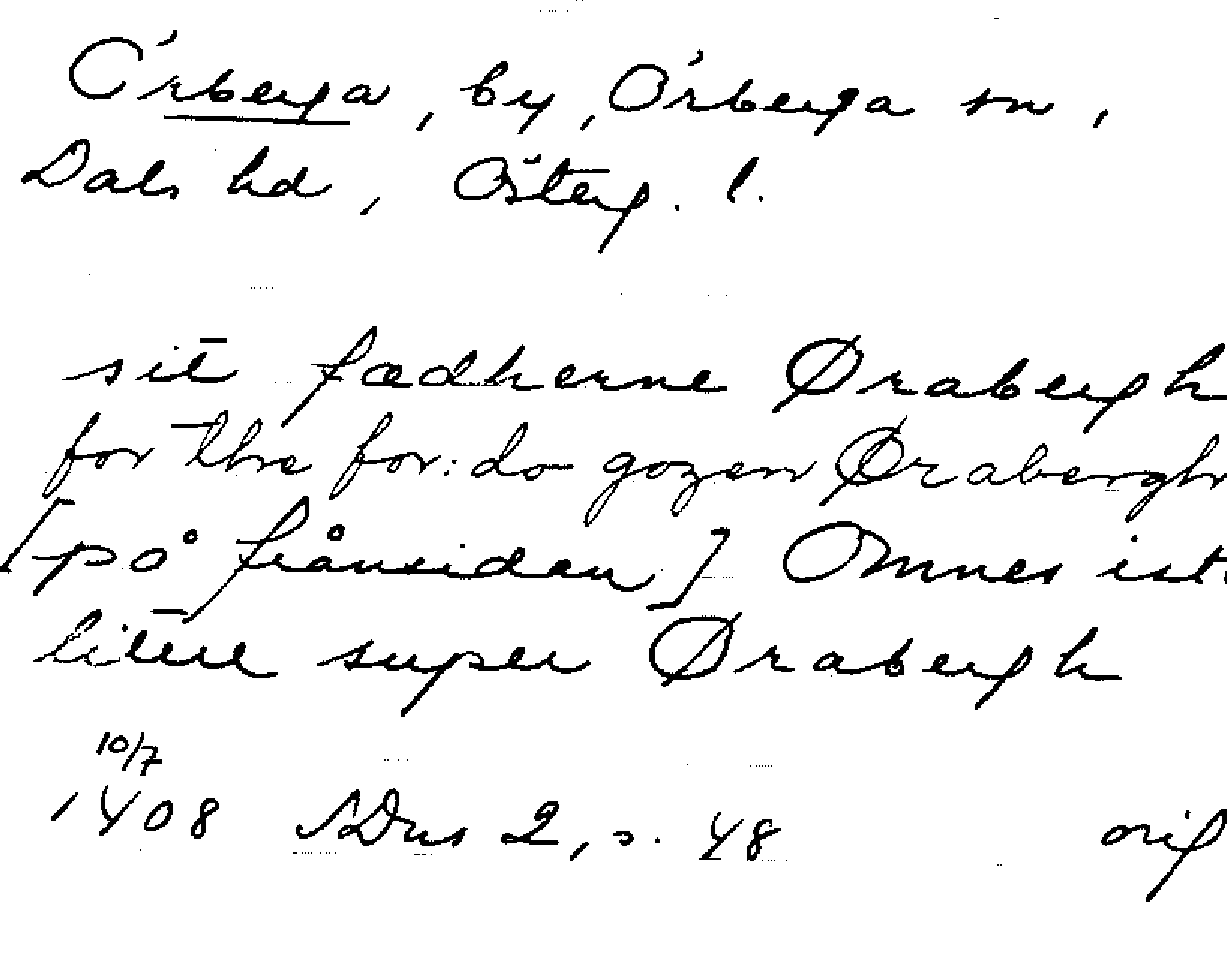 Örberga, by, Örberga sn,
Dals hd, Österg. l.
sit̄ fædherne Ørabergh
for thrə for:do gozen Ørabergh
[på frånsidan] Omnes ist
litere super Ørabergh
10/7
1408 SDns 2, s. 48 orig